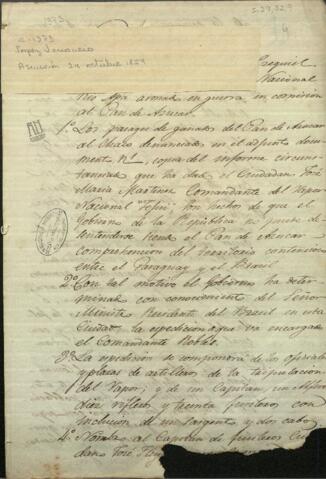 I-29,32,9
2-1373
López Venancio
Asunción 24 octubre 1854
Ezequiel
Nacional
Rio Apa armado en guerra en comision
al Pan de Azucar.
1º Los pasages de ganados del Pan de Azucar
al Chaco denunciados en el adjunto docu-
mento Nº 1, copia del informe circuns-
tanciado que ha dado el Ciudadano José
Maria Martinez Comandante del Vapor
Nacional son hechos de que el
Gobierno de la Republica no puede de-
sentenderse el Pan de Azucar
comprehension del Territorio contencioso
entre el Paraguay y el Brasil.
2º Con tal motivo el gobierno ha deter-
minado con conocimiento del Señor
Ministro Residente del Brasil en esta
Ciudad, la espedicion que va encargada
el Comandante Roble.
3º La espedicion se compondrá de los oficiales
y plazas de artilleros de la tripulacion
del Vapor; y de un Capitan, un Alferez
diez rifleros y treinta fusileros con
inclusion de un Sargento, y dos cabos
4º Nombra al Capitan de fusileros Ciu-
dadano José